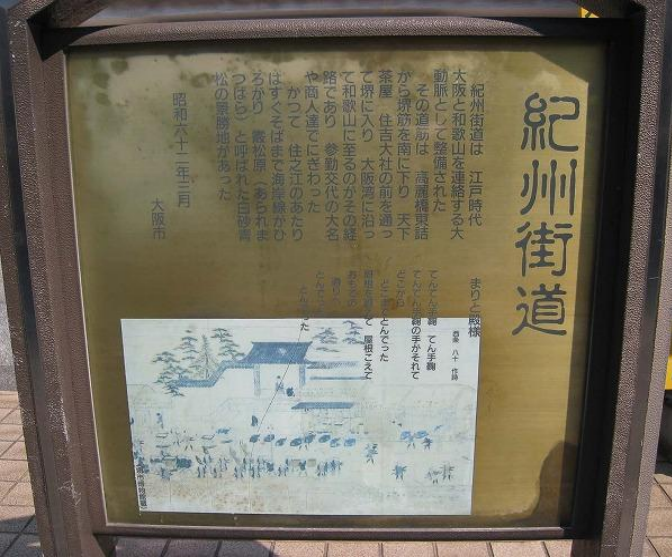 紀州街道
紀州街道は　江戸時代
大阪と和歌山を連絡する大
動脈として整備された
その道筋は　高麗橋東詰
から堺筋を南に下り　天下
茶屋　住吉大社の前を通っ
て堺に入り　大阪湾に沿っ
て和歌山に至るのがその経
路であり　参勤交代の大名
や商人達でにぎわった
かつて　住之江のあたり
はすぐそばまで海岸線がひ
ろがり　霰松原（あられま
つばら）と呼ばれた白砂青
松の景勝地があった
昭和六十二年三月
大阪市
まりと殿様
西条　八十　作詩
てんてん手鞠　てん手鞠
てんてん手鞠の手がそれて
どこから
とんでった
屋根こえて
とんでった